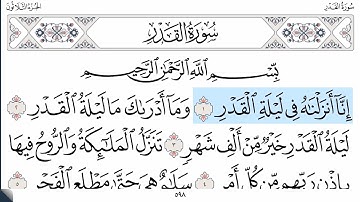 سُورَةُ القَدْرِ الجُزْءُ الثَّلَاثُونَ
سُورَةُ القَدْرِ
بِسْمِ ٱللَّهِ ٱلرَّحْمَٰنِ ٱلرَّحِيمِ
إِنَّآ أَنزَلْنَٰهُ فِى لَيْلَةِ ٱلْقَدْرِ ١ وَمَآ أَدْرَىٰكَ مَا لَيْلَةُ ٱلْقَدْرِ ٢
لَيْلَةُ ٱلْقَدْرِ خَيْرٌ مِّنْ أَلْفِ شَهْرٍ ٣ تَنَزَّلُ ٱلْمَلَٰٓئِكَةُ وَٱلرُّوحُ فِيهَا
بِإِذْنِ رَبِّهِم مِّن كُلِّ أَمْرٍ ٤ سَلَٰمٌ هِىَ حَتَّىٰ مَطْلَعِ ٱلْفَجْرِ ٥
٥٩٨